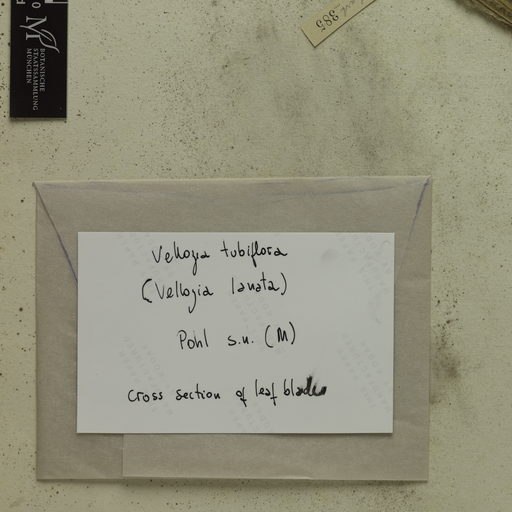 BOTANISCHE
STAATSSAMMLUNG
MÜNCHEN
385
Vellozia tubiflora
(Vellozia lanata)
Pohl s.n. (M)
cross section of leaf blades